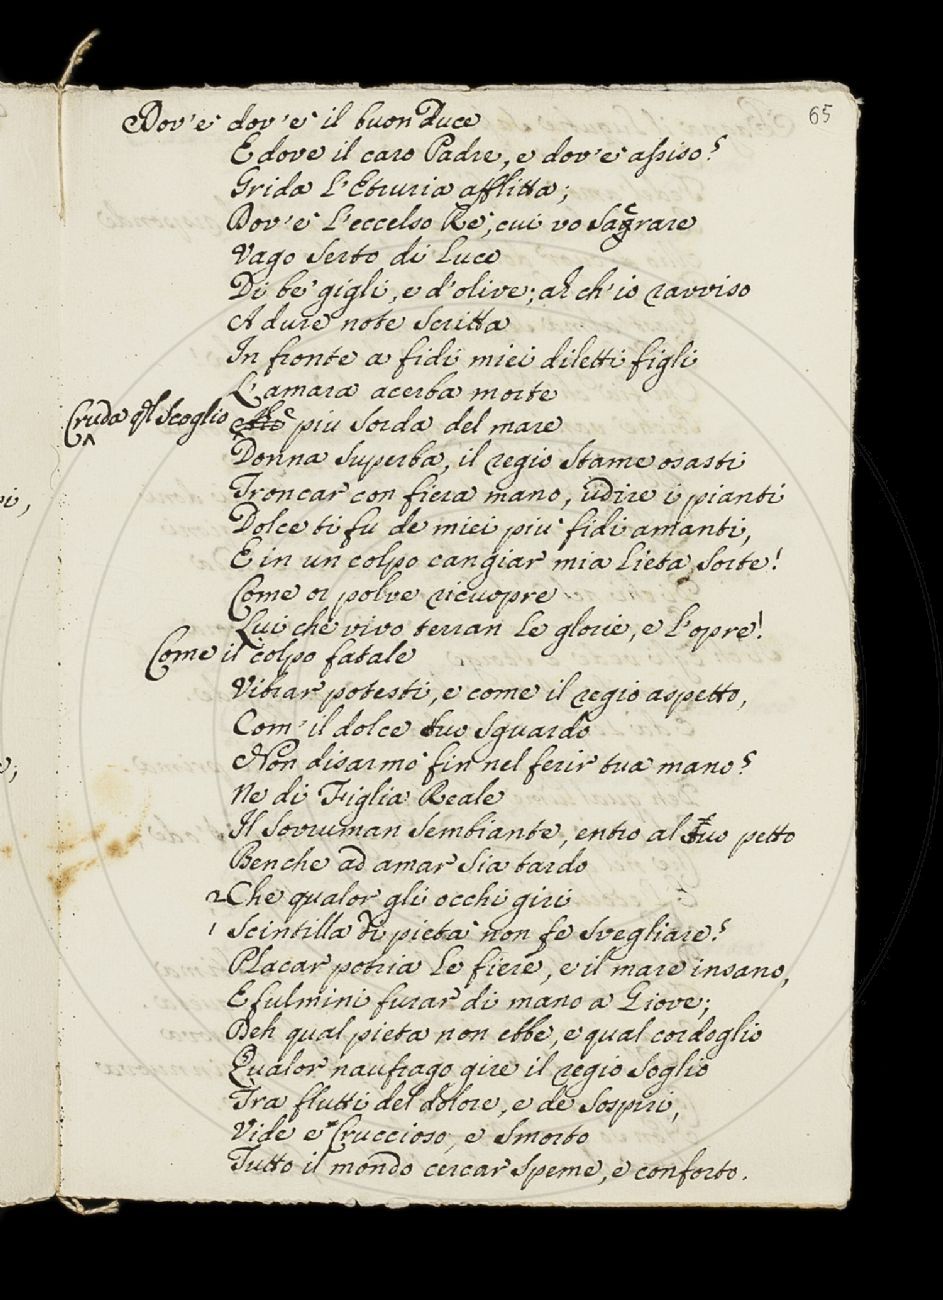 65
Dov'e' dov'e' il buon Duce
E dove il caro Padre, e dov'e' assiso?
Grida l'Etruria afflitta;
Dov'e' l'eccelso Re', cui vo sagrare
Vago serto di luce
Di be' gigli, e d'olive; ah ch'io ravviso
A dure note scritta
In fronte a fidi miei diletti figli
L'amara acerba morte
Cruda qĺ Scoglio che piu sorda del mare
Donna superba, il regio stame osasti
Troncar con fiera mano, udire i pianti
Dolce ti fu de miei piu' fidi amanti,
E in un colpo cangiar mia lieta sorte!
Come or polve ricuopre
Lui che vivo terran le glorie, e l'opre!
Come il colpo fatale
Vibrar potesti, e come il regio aspetto,
Com' il dolce suo sguardo
Non disarmo' fin nel ferir tua mano?
Ne di Figlia Reale
Il sovruman sembiante, entro al tuo petto
Benche ad amar sia tardo
2 Che qualor gli occhi giri
1 Scintilla di pieta' non fe svegliare?
Placar potria le fiere, e il mare insano,
E fulmini furar di mano a Giove;
Deh qual pieta non ebbe, e qual cordoglio
Qualor naufrago gire il regio soglio
Tra flutti del dolore, e de sospiri,
Vide e Cruccioso, e smorto
Tutto il mondo cercar speme, e conforto.